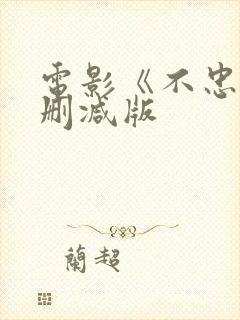 電影《不忠
删减版
蘭超